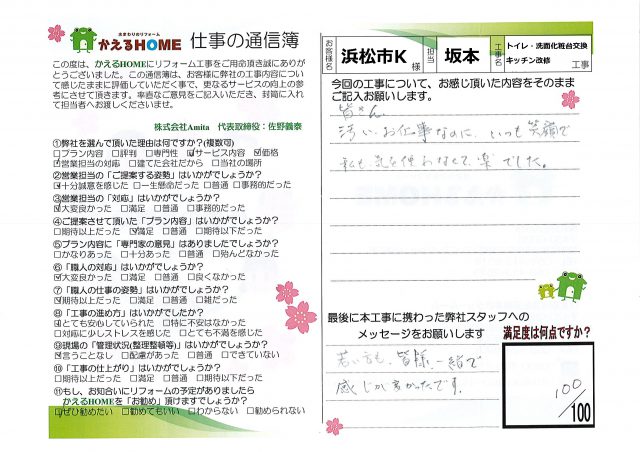 水まわりのリフォーム
かえるHOME 仕事の通信簿
この度は、かえるHOMEにリフォーム工事をご用命頂き誠にありが
とうございました。この通信簿は、お客様に弊社の工事内容につい
て感じたままに評価していただく事で、更なるサービスの向上の参
考にさせて頂きます。率直なご意見をご記入いただき、封筒に入れ
て担当者へお渡しくださいませ。
株式会社Amita 代表取締役:佐野義泰
①弊社を選んで頂いた理由は何ですか?(複数可)
□プラン内容 □評判 □専門性 ☑サービス内容 ☑価格
☑営業担当の対応 □建てた会社だから □当社の場所
②営業担当の「ご提案する姿勢」はいかがでしょうか?
☑十分誠意を感じた □一生懸命だった □普通 □事務的だった
③営業担当の「対応」はいかがでしょうか?
☑大変良かった □満足 □普通 □事務的だった
④ご提案させて頂いた「プラン内容」はいかがでしょうか?
□期待以上だった ☑満足 □普通 □期待以下だった
⑤プラン内容に「専門家の意見」はありましたでしょうか?
□かなりあった □十分あった □普通 □殆んどなかった
⑥「職人の対応」はいかがでしょうか?
☑大変良かった □満足 □普通 □良くなかった
⑦「職人の仕事の姿勢」はいかがでしょうか?
☑期待以上だった □満足 □普通 □雑だった
⑧「工事の進め方」はいかがでしたか?
☑とても安心していられた □特に不安はなかった
□対応に少しストレスを感じた □とても不満を感じた
⑨現場の「管理状況(整理整頓等)」はいかがでしょうか?
☑言うことなし □配慮があった □普通 □できていない
⑩「工事の仕上がり」はいかがでしょうか?
□期待以上だった □満足 □普通 □期待以下だった
⑪もし、お知合いにリフォームの予定がありましたら
かえるHOMEを「お勧め」頂けますでしょうか?
☑ぜひ勧めたい □勧めてもいい □わからない □勧められない
お客様名 浜松市K 様 担当 坂本 工事名 トイレ・洗面化粧台交換
キッチン改修 工事
今回の工事について、お感じ頂いた内容をそのまま
ご記入お願いします。
皆さん
汚いお仕事なのに、いつも笑顔で
私も気を使わなくて楽でした。
最後に本工事に携わった弊社スタッフへの
メッセージをお願いします
若い方も、皆様、一緒で
感じが良かったです。
満足度は何点ですか?
100
/100